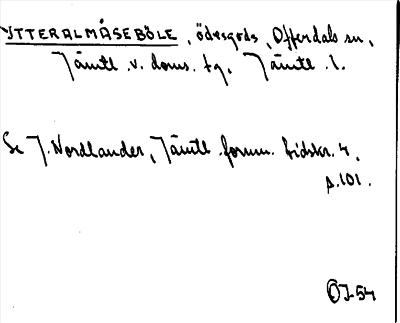 YTTERALMÅSEBÖLE, ödesgrds, Offerdals sn,
Jämtl. v. doms. tg. Jämtl. l.
Se J. Nordlander, Jämtl. fornm. tidskr. 4,
s. 101.
OJ-54